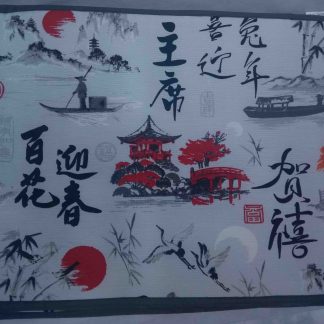 兔年
喜迎
主席
贺禧
迎春
百花